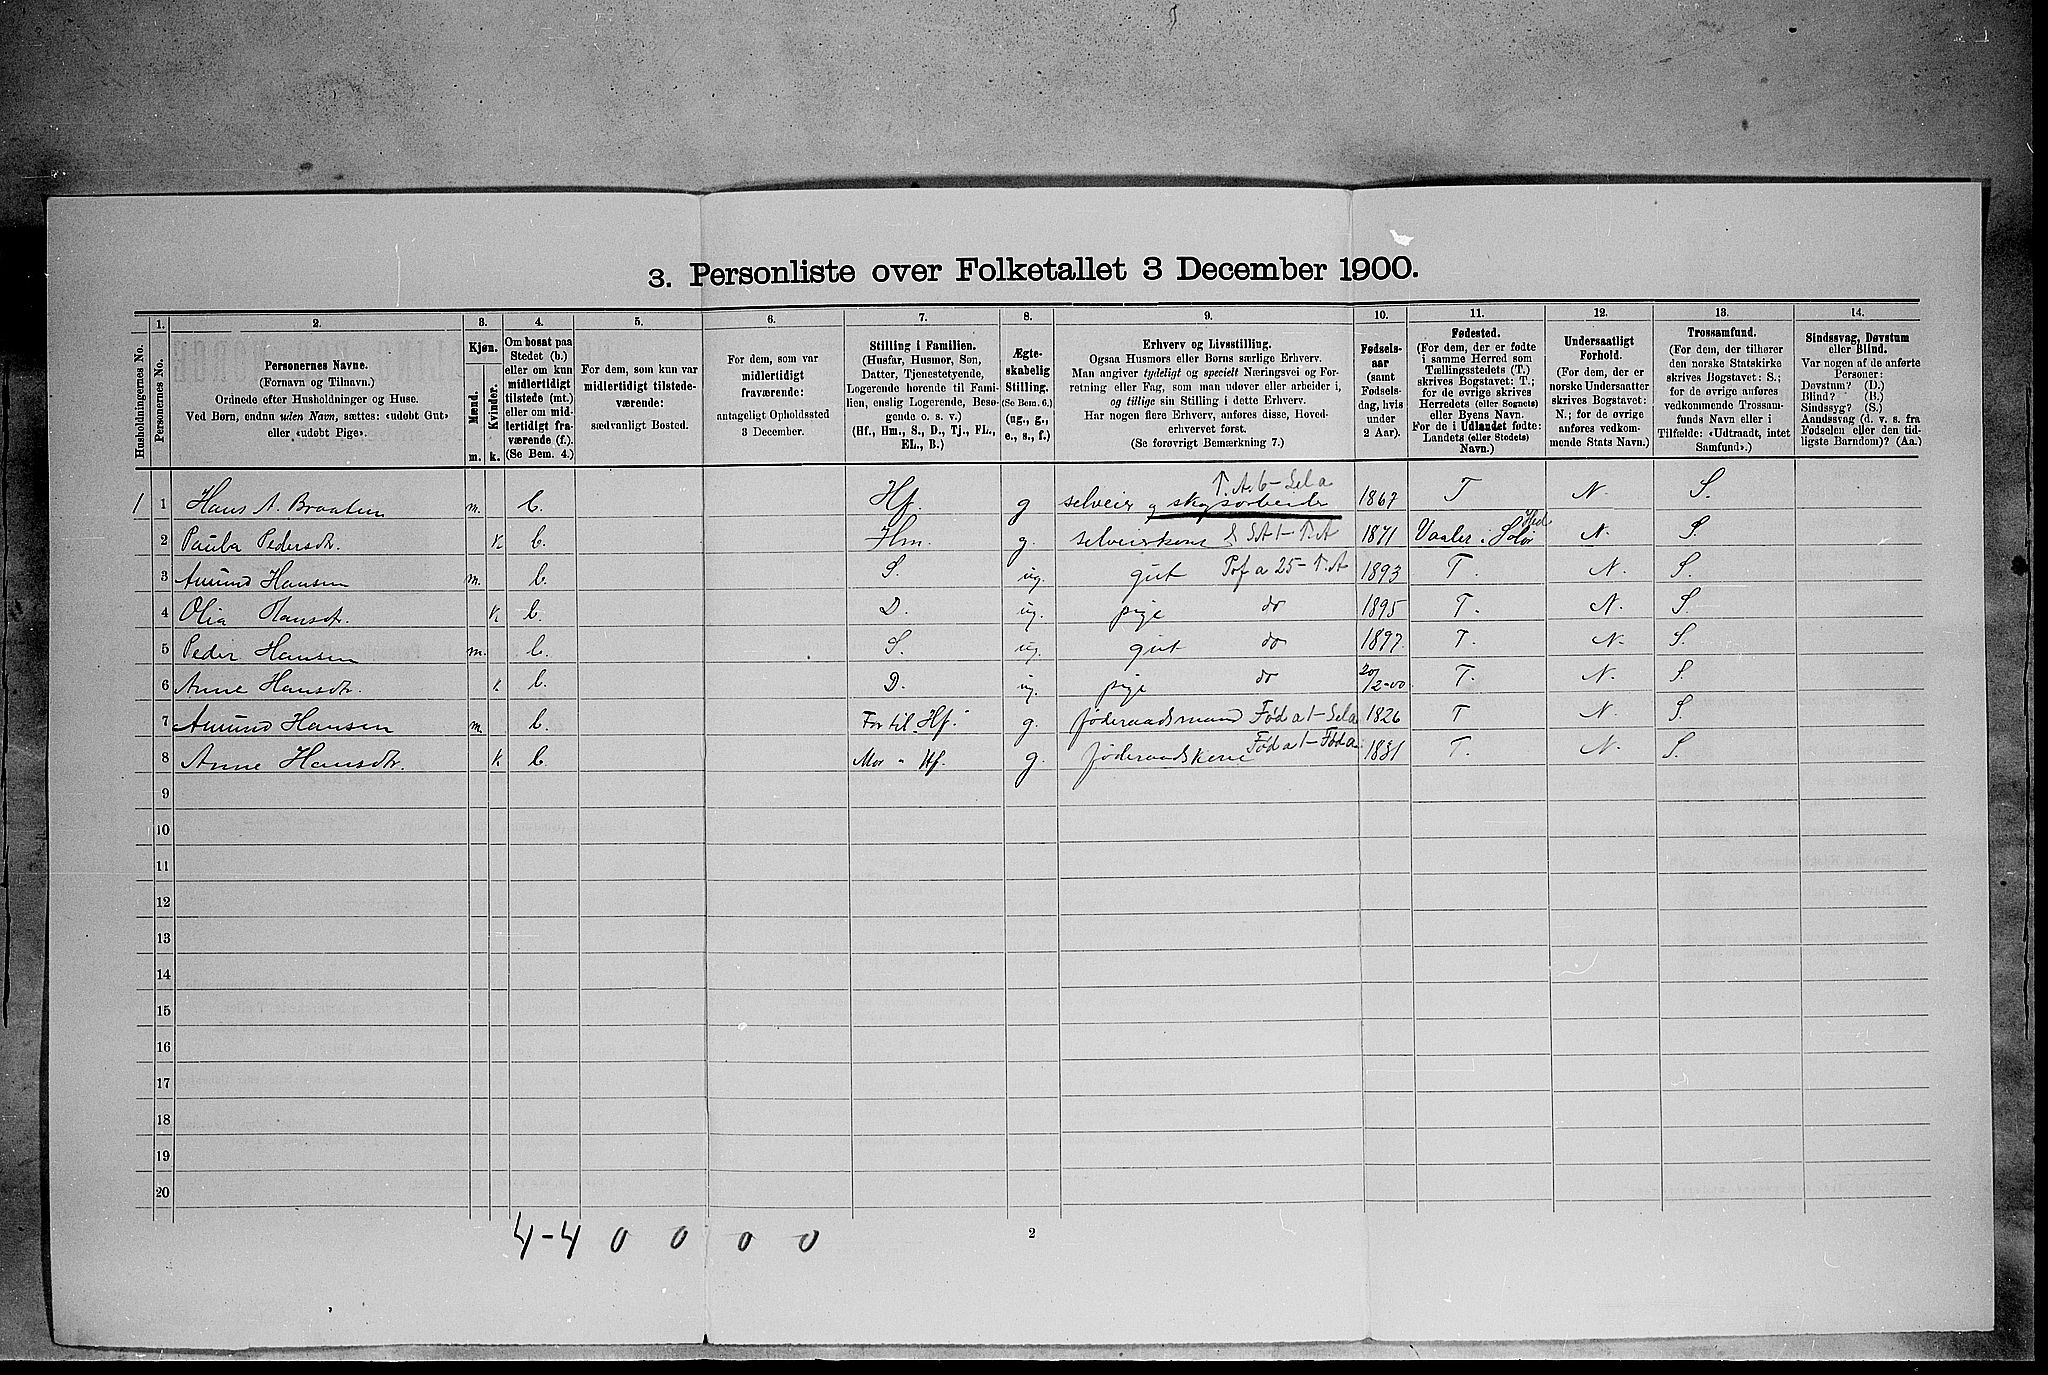 3. Personliste over Folketallet 3 December 1900.
Husholdningernes No.
1.
Personernes No.
2.
Personernes Navne.
(Fornavn og Tilnavn.)
Ordnede efter Husholdninger og Huse.
Ved Børn, endnu uden Navn, sættes: «udøbt Gut»
eller «udøbt Pige».
3.
Kjøn.
Mænd.
Kvinder.
m. k.
4.
Om bosat paa
Stedet (b.)
eller om kun
midlertidigt
tilstede (mt.)
eller om mid-
lertidigt fra-
værende (f.).
(Se Bem. 4.)
5.
For dem, som kun var
midlertidigt tilstede-
værende:
sædvanligt Bosted.
6.
For dem, som var
midlertidigt
fraværende:
antageligt Opholdssted
3 December.
7.
Stilling i Familien.
(Husfar, Husmor, Søn,
Datter, Tjenestetyende,
Logerende hørende til Fami-
lien, enslig Logerende, Besø-
gende o. s. v.)
(Hf., Hm., S., D., Tj., FL.,
EL., B.)
8.
Ægte-
skabelig
Stilling.
(Se Bem. 6.)
(ug., g.,
e., s., f.)
9.
Erhverv og Livsstilling.
Ogsaa Husmors eller Børns særlige Erhverv.
Man angiver tydeligt og specielt Næringsvei og For-
retning eller Fag, som man udøver eller arbeider i,
og tillige sin Stilling i dette Erhverv.
Har nogen flere Erhverv, anføres disse, Hoved-
erhvervet først.
(Se forøvrigt Bemærkning 7.)
10.
Fødsels-
aar
(samt
Fødsels-
dag, hvis
under
2 Aar).
11.
Fødested.
(For dem, der er fødte
i samme Herred som
Tællingsstedets (T.)
skrives Bogstavet: T.;
for de øvrige skrives
Herredets (eller Sognets)
eller Byens Navn.
For de i Udlandet fødte:
Landets (eller Stedets)
Navn.)
12.
Undersaatligt
Forhold.
(For dem, der er
norske Undersaatter
skrives Bogstavet:
N.; for de øvrige
anføres vedkom-
mende Stats Navn.)
13.
Trossamfund.
(For dem, der tilhører
den norske Statskirke
skrives Bogstavet: S.;
for de øvrige anføres
vedkommende Trossam-
funds Navn eller i
Tilfælde: «Udtraadt, intet
Samfund».)
14.
Sindssvag, Døvstum
eller Blind.
Var nogen af de anførte
Personer:
Døvstum? (D.)
Blind? (B.)
Sindssyg? (S.)
Aandssvag (d. v. s. fra
Fødselen eller den tid-
ligste Barndom)? (Aa.)
1 1 Hans A. Braaten m. b. Hf. g selveier og skogsarbeider 1867 T N. S.
2 Paula Pedersdtr. k b. Hm. g. selveierkone 1871 Vaaler i Solør Hed. N. S.
3 Amund Hansen m. b. S. ug. gut 1893 T. N. S.
4 Olia Hansdtr. k b. D. ug. pige do 1895 T. N. S.
5 Peder Hansen m. b. S. ug. gut do 1897. T. N. S.
6 Anne Hansdtr. k b. D. ug. pige do 20/2-00 T. N. S.
7 Amund Hansen m. b. Far til Hf. g. føderaadsmand 1826 T N. S.
8 Anne Hansdtr. k b. Mor " Hf. g. føderaadskone 1831 T. N. S.
9
10
11
12
13
14
15
16
17
18
19
20
4-4 0 0 0 0
2